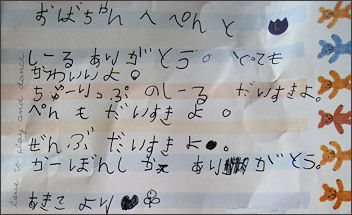 おばちゃん へ ぺん と
しーる ありがとう。とても
かわいいよ。
ちゅーりっぷ のしーる だいすきよ。
ぺん も だいすき よ。
ぜんぶ だいすきよ。
かーぼんし ありがとう。
あきこ より
love to play and dance